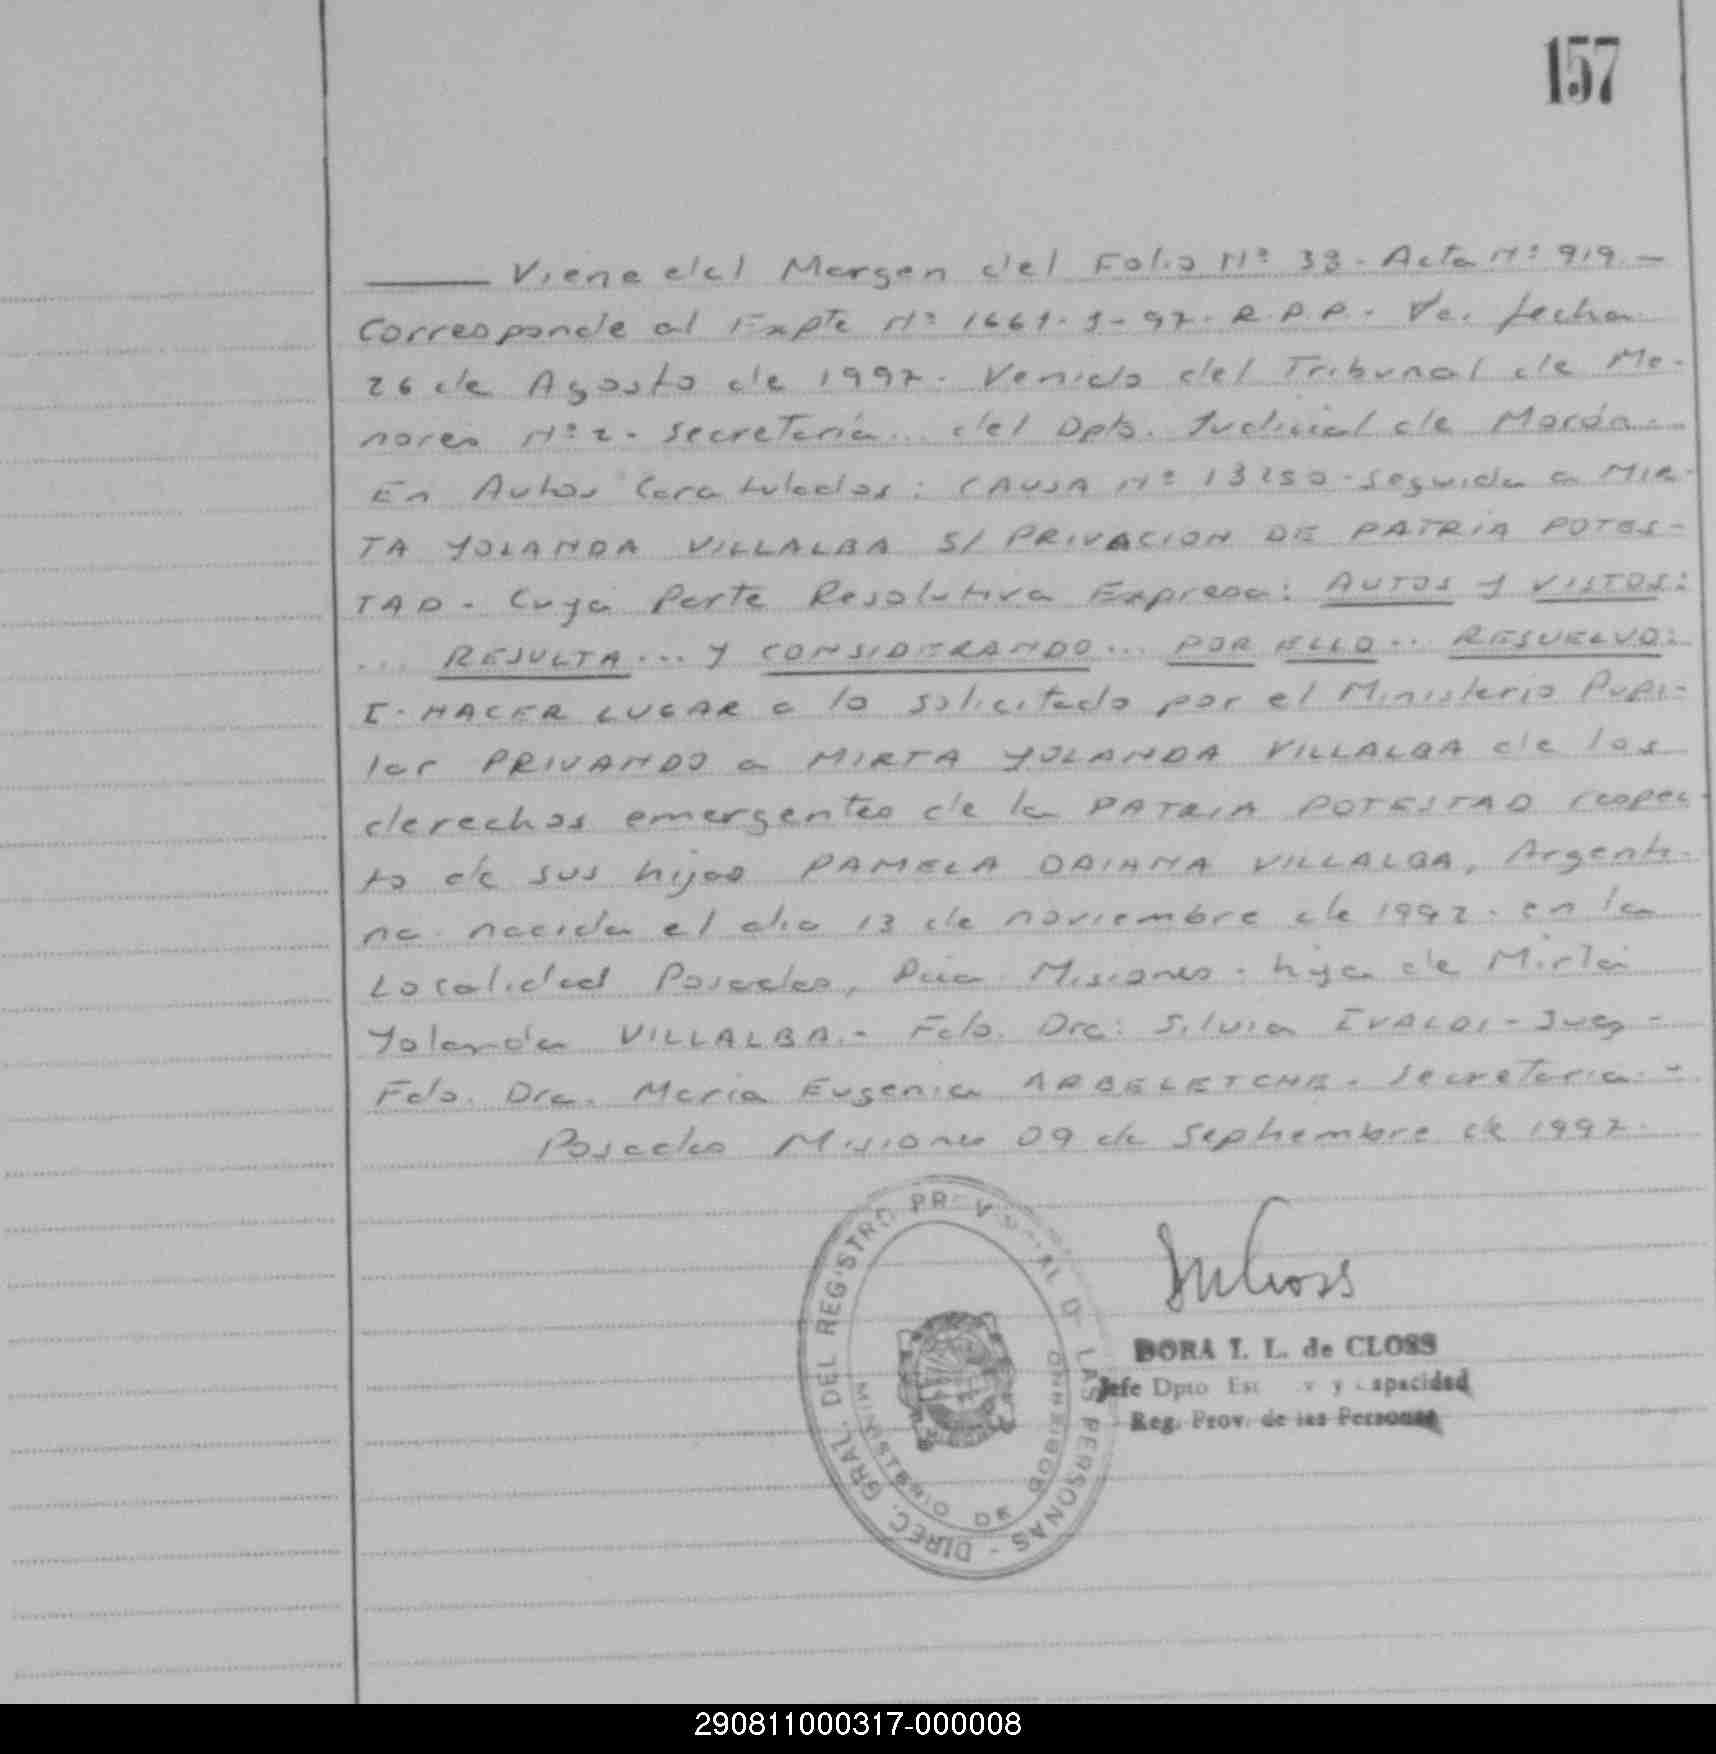 157
Viene del Margen del Folio Nº 38. Acta Nº 919 -
Corresponde al Expte Nº 1661-9-97. R.P.P. - De. fecha
26 de Agosto de 1997. Venido del Tribunal de Me-
nores Nº 2. Secretaría... del Dpto. Judicial de Morón...
En Autos Caratulados: CAUSA Nº 13250. Seguida a MIR-
TA YOLANDA VILLALBA S/ PRIVACION DE PATRIA POTES-
TAD - Cuya Parte Resolutiva Expresa: AUTOS Y VISTOS:
... RESULTA ... Y CONSIDERANDO ... POR ELLO ... RESUELVO:
I- HACER LUGAR a lo solicitado por el Ministerio Pupi-
lar PRIVANDO a MIRTA YOLANDA VILLALBA de los
derechos emergentes de la PATRIA POTESTAD respec-
to de sus hijos PAMELA DAIANA VILLALBA, Argenti-
na. nacida el día 13 de noviembre de 1992. en la
Localidad Posadas, Pcia Misiones. hija de Mirta
Yolanda VILLALBA. - Fdo. Dra: Silvia IVALDI - Juez -
Fdo. Dra. María Eugenia ARBELETCHE. Secretaria. -
Posadas Misiones 09 de Septiembre de 1997.
DIREC. GRAL. DEL REGISTRO PR V AL D LAS PERSONAS -
MINISTERIO DE GOBIERNO
DORA I. L. de CLOSS
Jefe Dpto Est v y apacidad
Reg. Prov. de las Personas
290811000317-000008